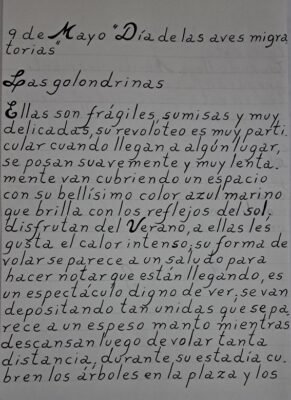 9 de Mayo "Día de las aves migra
torias"
Las golondrinas
Ellas son frágiles, sumisas y muy
delicadas, su revoloteo es muy parti
cular cuando llegan a algún lugar,
se posan suavemente y muy lenta.
mente van cubriendo un espacio
con su bellísimo color azul marino
que brilla con los reflejos del sol,
disfrutan del Verano, a ellas les
gusta el calor intenso, su forma de
volar se parece a un saludo para
hacer notar que están llegando, es
un espectáculo digno de ver, se van
depositando tan unidas que se pa,
rece a un espeso manto mientras
descansan luego de volar tanta
distancia, durante su estadía cu.
bren los árboles en la plaza y los